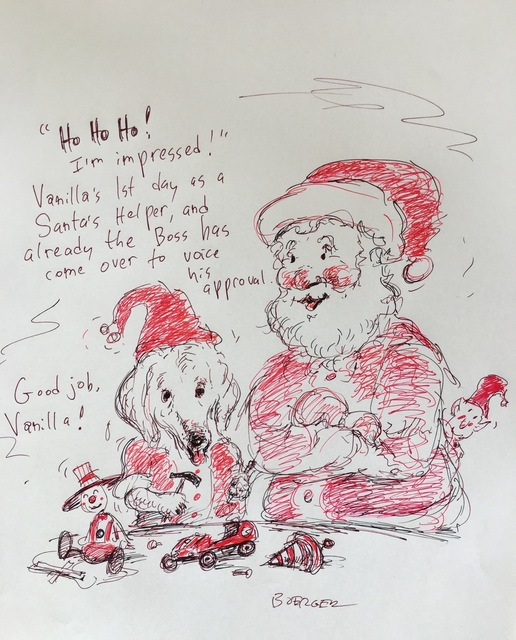 "Ho Ho Ho!
I'm impressed!"
Vanilla's 1st day as a
Santa's Helper, and
already the Boss has
come over to voice
his
approval.
Good job,
Vanilla!
BOERGER